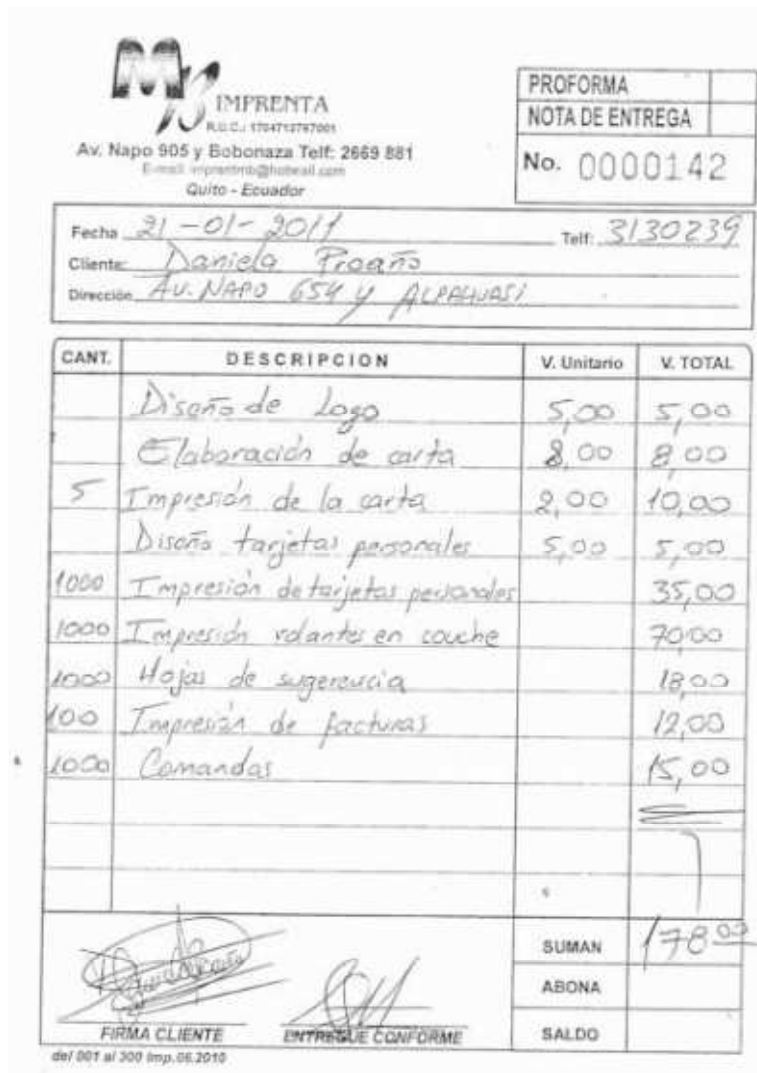 MB
IMPRENTA
R.U.C.: 1704713767001
Av. Napo 905 y Bobonaza Telf: 2669 881
E-mail: imprentmb@hotmail.com
Quito - Ecuador
PROFORMA
NOTA DE ENTREGA
No. 0000142
Fecha 21-01-2011 Telf: 3130239
Cliente: Daniela Proaño
Dirección AV. NAPO 654 y ALPAHUASI
CANT. DESCRIPCION V. Unitario V. TOTAL
Diseño de Logo 5,00 5,00
Elaboración de carta 8,00 8,00
5 Impresión de la carta 2,00 10,00
Diseño tarjetas personales 5,00 5,00
1000 Impresión de tarjetas personales 35,00
1000 Impresión volantes en couche 70,00
1000 Hojas de sugerencia 18,00
100 Impresión de facturas 12,00
1000 Comandas 15,00
SUMAN 178 00
ABONA
SALDO
FIRMA CLIENTE ENTREGUE CONFORME
del 001 al 300 Imp.06.2010